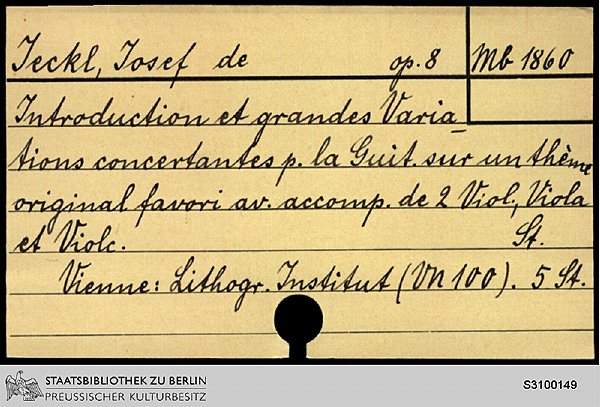 Jeckl, Josef de op. 8 Mb 1860
Introduction et grandes Varia-
tions concertantes p. la Guit. sur un thème
original favori av. accomp. de 2 Viol., Viola
et Violc. St.
Vienne: Lithogr. Institut (VN 100). 5 St.
STAATSBIBLIOTHEK ZU BERLIN
PREUSSISCHER KULTURBESITZ
S3100149